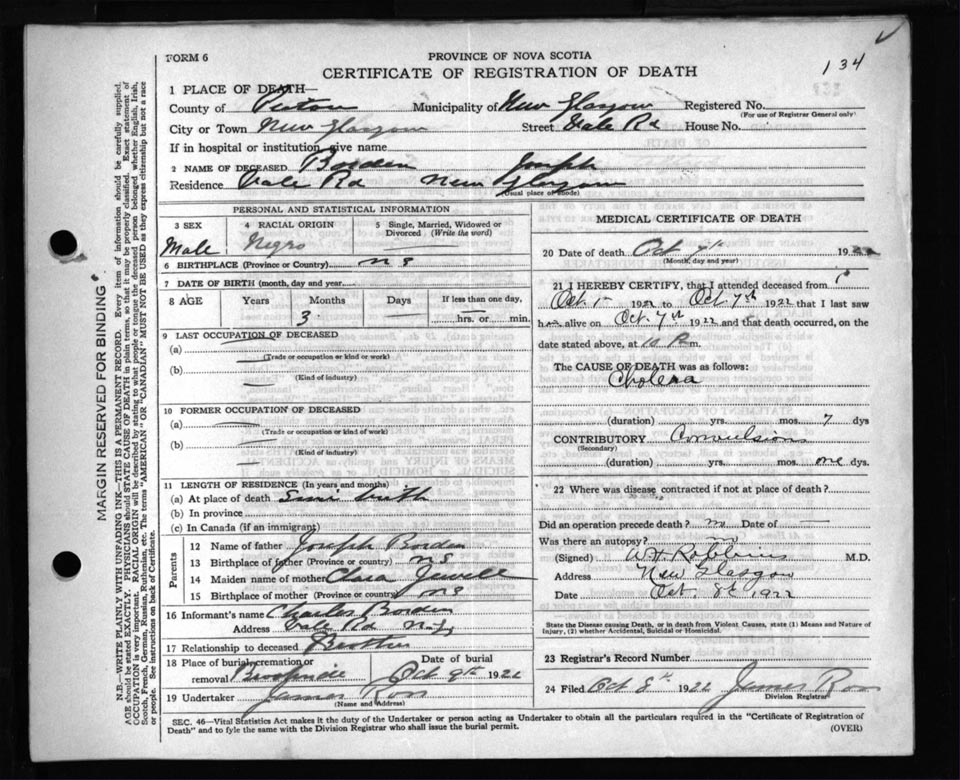 134
FORM 6
PROVINCE OF NOVA SCOTIA
CERTIFICATE OF REGISTRATION OF DEATH
1 PLACE OF DEATH—
County of Pictou Municipality of New Glasgow Registered No.
(For use of Registrar General only)
City or Town New Glasgow Street Vale Rd House No.
If in hospital or institution, give name
2 NAME OF DECEASED Borden Joseph
Residence Vale Rd New Glasgow
(Usual place of abode)
PERSONAL AND STATISTICAL INFORMATION
3 SEX 4 RACIAL ORIGIN 5 Single, Married, Widowed or Divorced (Write the word)
Male Negro
6 BIRTHPLACE (Province or Country) N S
7 DATE OF BIRTH (month, day and year)
8 AGE Years Months Days If less than one day,
3 hrs. or min.
9 LAST OCCUPATION OF DECEASED
(a)
(Trade or occupation or kind of work)
(b)
(Kind of industry)
10 FORMER OCCUPATION OF DECEASED
(a)
(Trade or occupation or kind of work)
(b)
(Kind of industry)
11 LENGTH OF RESIDENCE (In years and months)
(a) At place of death Since birth
(b) In province
(c) In Canada (if an immigrant)
Parents
12 Name of father Joseph Borden
13 Birthplace of father (Province or country) N S
14 Maiden name of mother Clara Jewell
15 Birthplace of mother (Province or country) N S
16 Informant's name Charles Borden
Address Vale Rd N. G
17 Relationship to deceased Brother
18 Place of burial, cremation or removal Date of burial
Oct 9th 1922
19 Undertaker James Ross
(Name and Address)
MEDICAL CERTIFICATE OF DEATH
20 Date of death Oct 7th 1922
(Month, day and year)
21 I HEREBY CERTIFY, that I attended deceased from
Oct 1 1922 to Oct 7th 1922 that I last saw
h alive on Oct. 7th 1922 and that death occurred, on the
date stated above, at 10 P. m.
The CAUSE OF DEATH was as follows:
Cholera
(duration) yrs. mos. 7 dys
CONTRIBUTORY Convulsions
(Secondary)
(duration) yrs. mos. one dys.
22 Where was disease contracted if not at place of death?
Did an operation precede death? no Date of —
Was there an autopsy? no
(Signed) W H Robbins M.D.
Address New Glasgow
Date Oct. 8th 1922
State the Disease causing Death, or in death from Violent Causes, state (1) Means and Nature of
Injury, (2) whether Accidental, Suicidal or Homicidal.
23 Registrar's Record Number
24 Filed Oct 8th 1922 James Ross
Division Registrar
SEC. 46—Vital Statistics Act makes it the duty of the Undertaker or person acting as Undertaker to obtain all the particulars required in the "Certificate of Registration of
Death" and to fyle the same with the Division Registrar who shall issue the burial permit. (OVER)
MARGIN RESERVED FOR BINDING
N.B.—WRITE PLAINLY WITH UNFADING INK—THIS IS A PERMANENT RECORD. Every item of information should be carefully supplied.
AGE should be stated EXACTLY. PHYSICIANS should STATE CAUSE OF DEATH in plain terms, so that it may be properly classified. Exact statement of
OCCUPATION is very important. RACIAL ORIGIN will be described by stating to what people or tongue the deceased person belonged whether English, Irish,
Scotch, French, German, Russian, Ruthenian, etc. The terms "AMERICAN" OR "CANADIAN" MUST NOT BE USED as they express citizenship but not a race
or people. See instructions on back of Certificate.